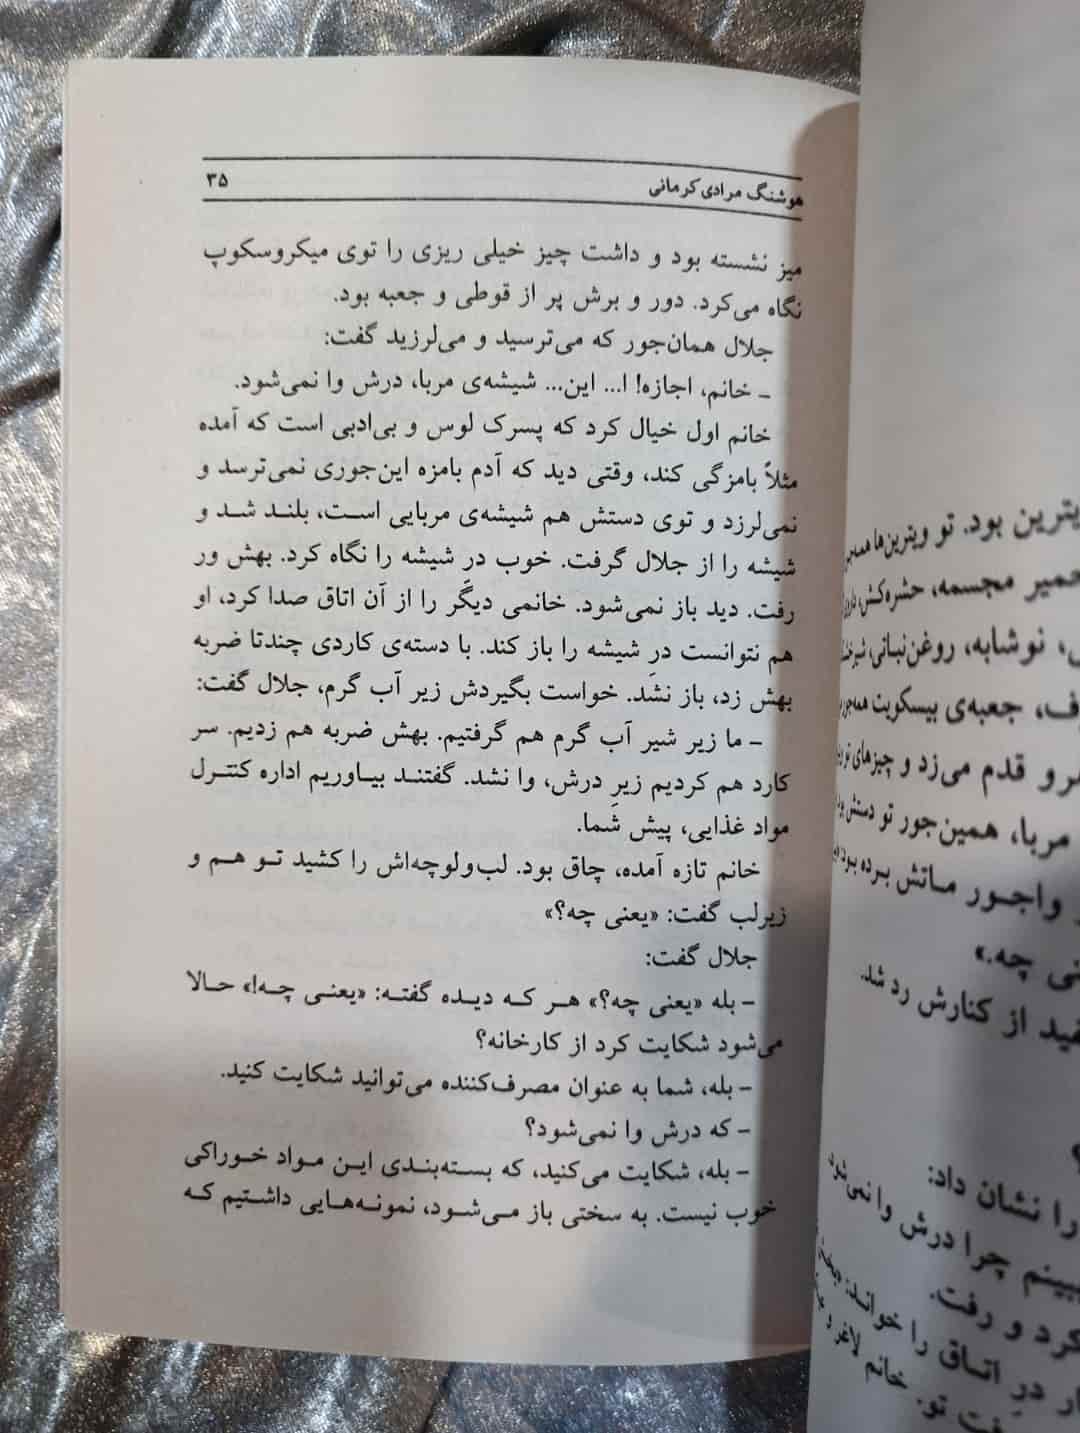 هوشنگ مرادی‌کرمانی ۳۵
میز نشسته بود و داشت چیز خیلی ریزی را توی میکروسکوپ
نگاه می‌کرد. دور و برش پر از قوطی و جعبه بود.
جلال همان‌جور که می‌ترسید و می‌لرزید گفت:
ـ خانم، اجازه! ا... این... شیشه‌ی مربا، درش وا نمی‌شود.
خانم اول خیال کرد که پسرک لوس و بی‌ادبی است که آمده
مثلاً بامزگی کند، وقتی دید که آدم بامزه این‌جوری نمی‌ترسد و
نمی‌لرزد و توی دستش هم شیشه‌ی مربایی است، بلند شد و
شیشه را از جلال گرفت. خوب درِ شیشه را نگاه کرد. بهش ور
رفت. دید باز نمی‌شود. خانمی دیگر را از آن اتاق صدا کرد، او
هم نتوانست درِ شیشه را باز کند. با دسته‌ی کاردی چندتا ضربه
بهش زد، باز نشد. خواست بگیردش زیر آب گرم، جلال گفت:
ـ ما زیر شیر آب گرم هم گرفتیم. بهش ضربه هم زدیم. سر
کارد هم کردیم زیرِ درش، وا نشد. گفتند بیاوریم اداره کنترل
مواد غذایی، پیش شما.
خانم تازه آمده، چاق بود. لب‌ولوچه‌اش را کشید تو هم و
زیرلب گفت: «یعنی چه؟»
جلال گفت:
ـ بله «یعنی چه؟» هر که دیده گفته: «یعنی چه!» حالا
می‌شود شکایت کرد از کارخانه؟
ـ بله، شما به عنوان مصرف‌کننده می‌توانید شکایت کنید.
ـ که درش وا نمی‌شود؟
ـ بله، شکایت می‌کنید، که بسته‌بندی این مواد خوراکی
خوب نیست. به سختی باز می‌شود، نمونه‌هایی داشتیم که
بود. تو ویترین‌ها
مجسمه، حشره‌کش،
نوشابه، روغن‌نباتی،
جعبه‌ی بیسکویت
قدم می‌زد و چیزهای
مربا، همین‌جور تو دستش
واجور ماتش برده بود
چه.»
از کنارش رد شد.
را نشان داد:
چرا درش وا نمی‌شود
کرد و رفت.
درِ اتاق را خواند:
تو. خانم لاغر و